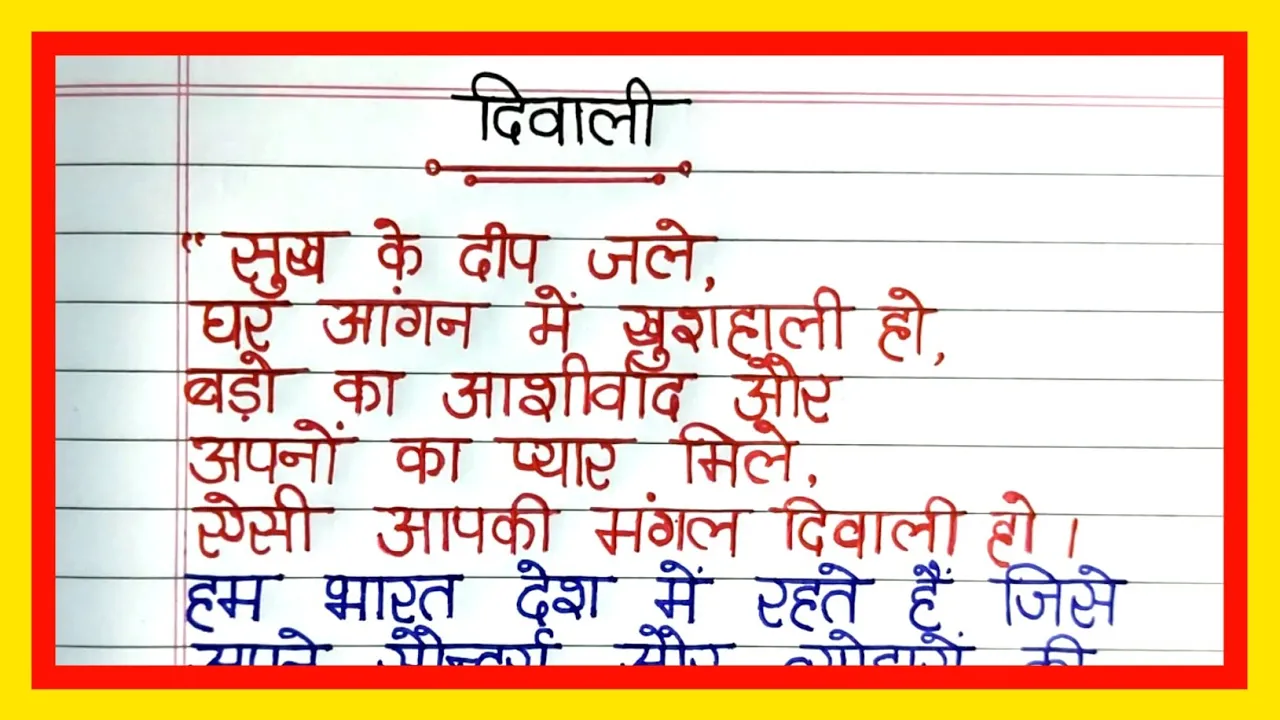 दिवाली
" सुख के दीप जले,
घर आंगन में खुशहाली हो,
बड़ो का आशीर्वाद और
अपनों का प्यार मिले,
ऐसी आपकी मंगल दिवाली हो ।
हम भारत देश में रहते हैं जिसे
अपने सौन्दर्य और त्योहारों की